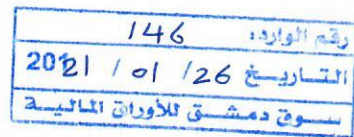 رقم الوارد: 146
التاريخ 26/ 01 / 2021
سوق دمشق للأوراق المالية